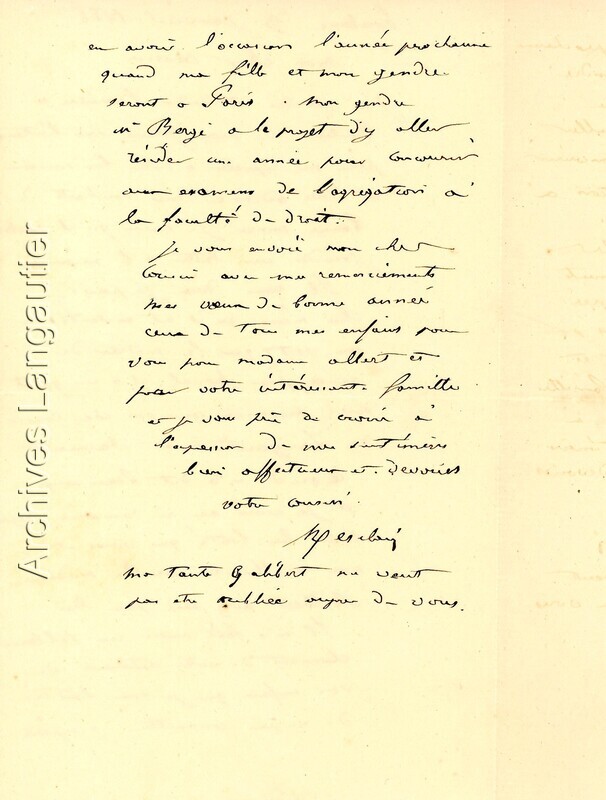 en avoir l'occasion l'année prochaine
quand ma fille et mon gendre
seront a Paris. mon gendre
Mr Bergé a le projet d'y aller
résider une année pour concourir
aux examens de l'agrégation à
la faculté de droit.
je vous envoie mon cher
Cousin avec mes remerciements
mes voeux de bonne année
ceux de tous mes enfants pour
vous pour madame albert et
pour votre intéressante famille
et je vous prie de croire à
l'expression de mes sentiments
bien affectueux et dévoués
votre cousin.
ma tante Galibert ne veut
pas etre oubliée auprès de vous.
Archives Langautier